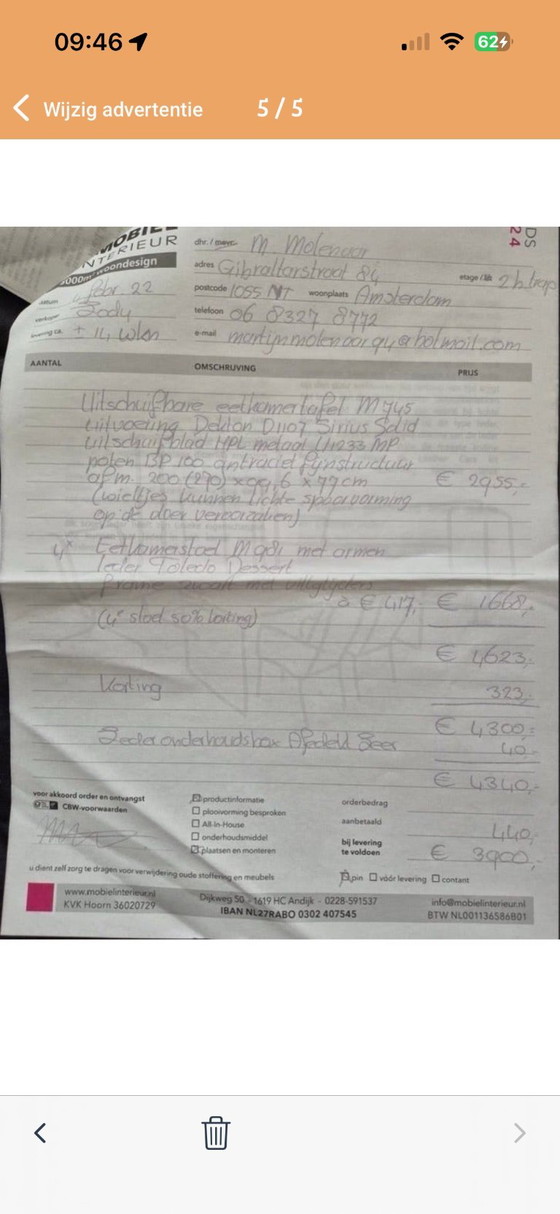 09:46
62
Wijzig advertentie 5 / 5
MOBIEL
INTERIEUR
woondesign
DS
24
dhr. / mevr. M. Molenaar
adres Gibraltarstraat 84 etage / lift 2 h. trap
febr. 22
postcode 1055 NT woonplaats Amsterdam
telefoon 06 8327 8772
± 14 wkn
e-mail
AANTAL OMSCHRIJVING PRIJS
Uitschuifbare eetkamertafel
uitvoering Dekton Sirius Solid
uitschuifblad HPL metaal MP
poten BP 100 antraciet fijnstructuur
afm. 200 (270) x 99,6 x 77 cm € 2955,-
(wieltjes kunnen lichte spoorvorming
op de vloer veroorzaken)
4x Eetkamerstoel met armen
leder Toledo Dessert
frame zwart met viltglijders
à € 417,- € 1668,-
(4e stoel 50% korting)
€ 4623,-
Korting 323,-
€ 4300,-
40,-
€ 4340,-
voor akkoord order en ontvangst
CBW-voorwaarden
productinformatie
plooivorming besproken
All-In-House
onderhoudsmiddel
plaatsen en monteren
orderbedrag
aanbetaald 440,-
bij levering
te voldoen € 3900,-
u dient zelf zorg te dragen voor verwijdering oude stoffering en meubels
pin vóór levering contant
www.mobielinterieur.nl
KVK Hoorn 36020729
Dijkweg 50 - 1619 HC Andijk - 0228-591537
IBAN NL27RABO 0302 407545
info@mobielinterieur.nl
BTW NL001136586B01